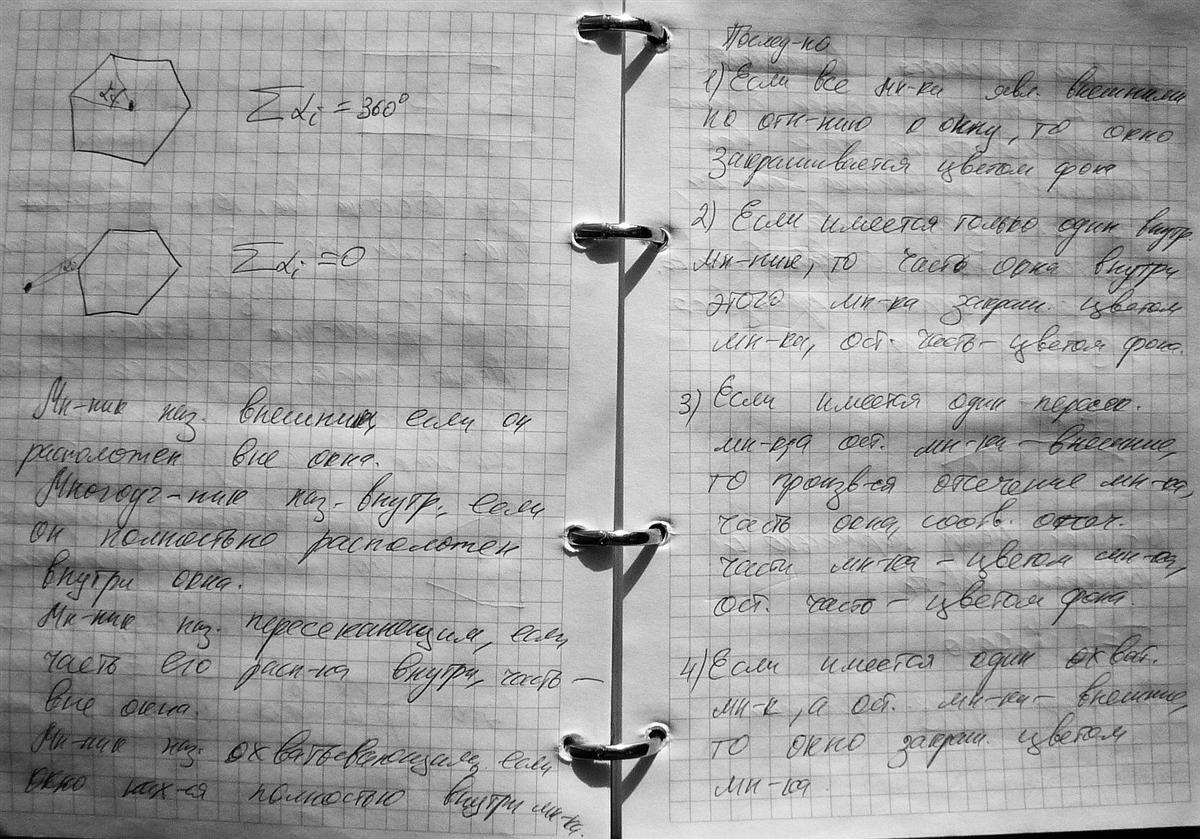 α
Σαi = 360°
Σαi = 0
Мн-ник наз. внешним, если он
расположен вне окна.
Многоуг-ник наз. внутр., если
он полностью расположен
внутри окна.
Мн-ник наз. пересекающим, если
часть его расп-на внутри, часть –
вне окна.
Мн-ник наз. охватывающим, если
окно нах-ся полностью внутри мн-ка.
Послед-но
1) Если все мн-ки явл. внешними
по отн-нию к окну, то окно
закрашивается цветом фона
2) Если имеется только один внутр.
мн-ник, то часть окна внутри
этого мн-ка закраш. цветом
мн-ка, ост. часть – цветом фона.
3) Если имеется один пересек.
мн-к, а ост. мн-ки – внешние,
то произв-ся отсечение мн-ка,
часть окна, соотв. отсеч.
части мн-ка – цветом мн-ка,
ост. часть – цветом фона.
4) Если имеется один охват.
мн-к, а ост. мн-ки – внешние,
то окно закраш. цветом
мн-ка.